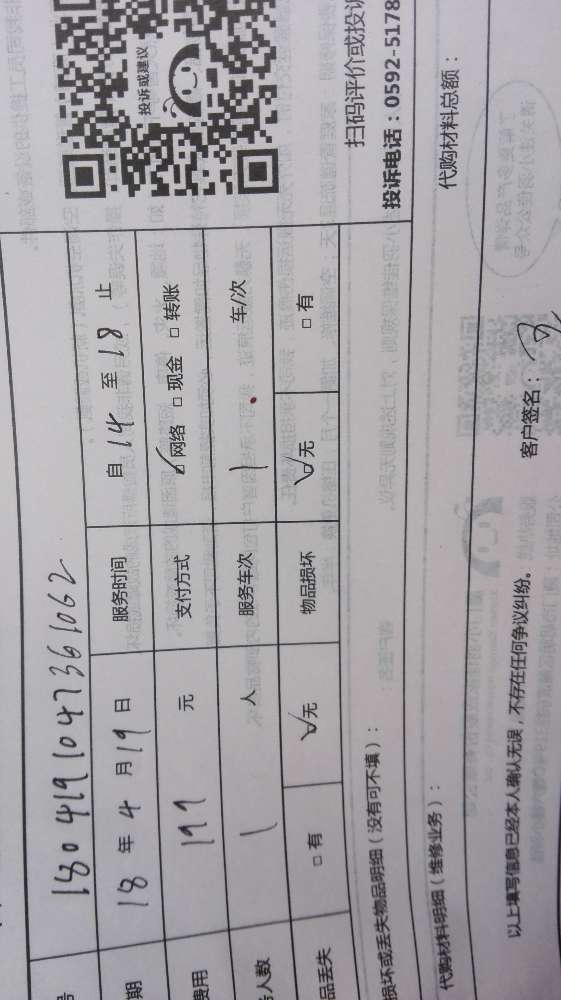 投诉或建议
扫码评价或投诉
投诉电话：0592-5178
号 1804191047361062
期 18 年 4 月 19 日 服务时间 自 14 至 18 止
费用 199 元 支付方式 ☑网络 □现金 □转账
人数 1 人 服务车次 1 车/次
品丢失 □有 ☑无 物品损坏 ☑无 □有
损坏或丢失物品明细（没有可不填）：
代购材料明细（维修业务）： 代购材料总额：
以上填写信息已经本人确认无误，不存在任何争议纠纷。 客户签名：